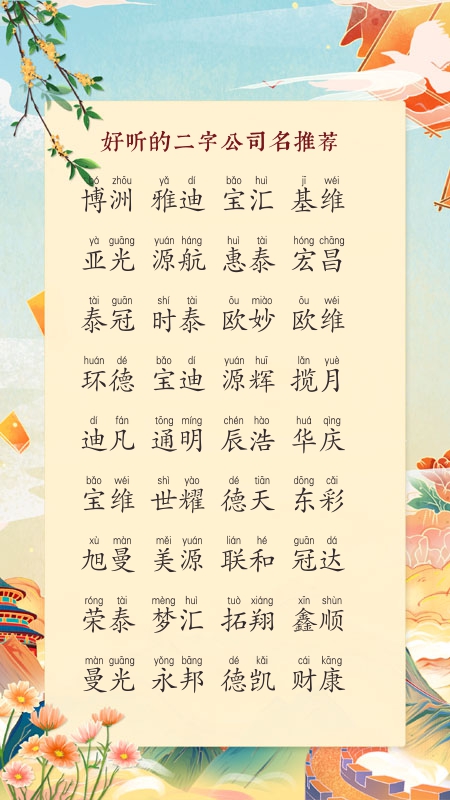 好听的二字公司名推荐
bó zhōu yǎ dí bǎo huì jī wéi
博洲 雅迪 宝汇 基维
yà guāng yuán háng huì tài hóng chāng
亚光 源航 惠泰 宏昌
tài guān shí tài ōu miào ōu wéi
泰冠 时泰 欧妙 欧维
huán dé bǎo dí yuán huī lǎn yuè
环德 宝迪 源辉 揽月
dí fán tōng míng chén hào huá qìng
迪凡 通明 辰浩 华庆
bǎo wéi shì yào dé tiān dōng cǎi
宝维 世耀 德天 东彩
xù màn měi yuán lián hé guān dá
旭曼 美源 联和 冠达
róng tài mèng huì tuò xiáng xīn shùn
荣泰 梦汇 拓翔 鑫顺
màn guāng yǒng bāng dé kǎi cái kāng
曼光 永邦 德凯 财康